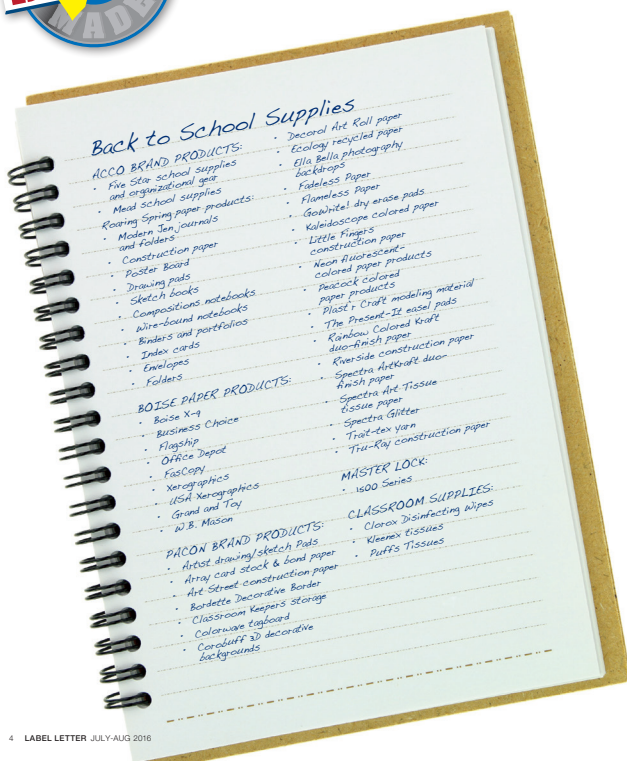 MADE
Back to School Supplies
ACCO BRAND PRODUCTS:
• Five Star school supplies
and organizational gear
• Mead school supplies
Roaring Spring paper products:
• Modern Jen journals
and folders
• Construction paper
• Poster Board
• Drawing pads
• Sketch books
• Compositions notebooks
• Wire-bound notebooks
• Binders and portfolios
• Index cards
• Envelopes
• Folders
BOISE PAPER PRODUCTS:
• Boise X-9
• Business Choice
• Flagship
• Office Depot
• FasCopy
• Xerographics
• USA Xerographics
• Grand and Toy
• W.B. Mason
PACON BRAND PRODUCTS:
• Artist drawing/sketch Pads
• Array card stock & bond paper
• Art Street construction paper
• Bordette Decorative Border
• Classroom Keepers storage
• Colorwave tagboard
• Corobuff 3D decorative
backgrounds
• Decorol Art Roll paper
• Ecology recycled paper
• Ella Bella photography
backdrops
• Fadeless Paper
• Flameless Paper
• GoWrite! dry erase pads
• Kaleidoscope colored paper
• Little Fingers
construction paper
• Neon fluorescent-
colored paper products
• Peacock colored
paper products
• Plast'r Craft modeling material
• The Present-It easel pads
• Rainbow Colored Kraft
duo-finish paper
• Riverside construction paper
• Spectra ArtKraft duo-
finish paper
• Spectra Art Tissue
tissue paper
• Spectra Glitter
• Trait-tex yarn
• Tru-Ray construction paper
MASTER LOCK:
• 1500 Series
CLASSROOM SUPPLIES:
• Clorox Disinfecting Wipes
• Kleenex tissues
• Puffs Tissues
4 LABEL LETTER JULY-AUG 2016